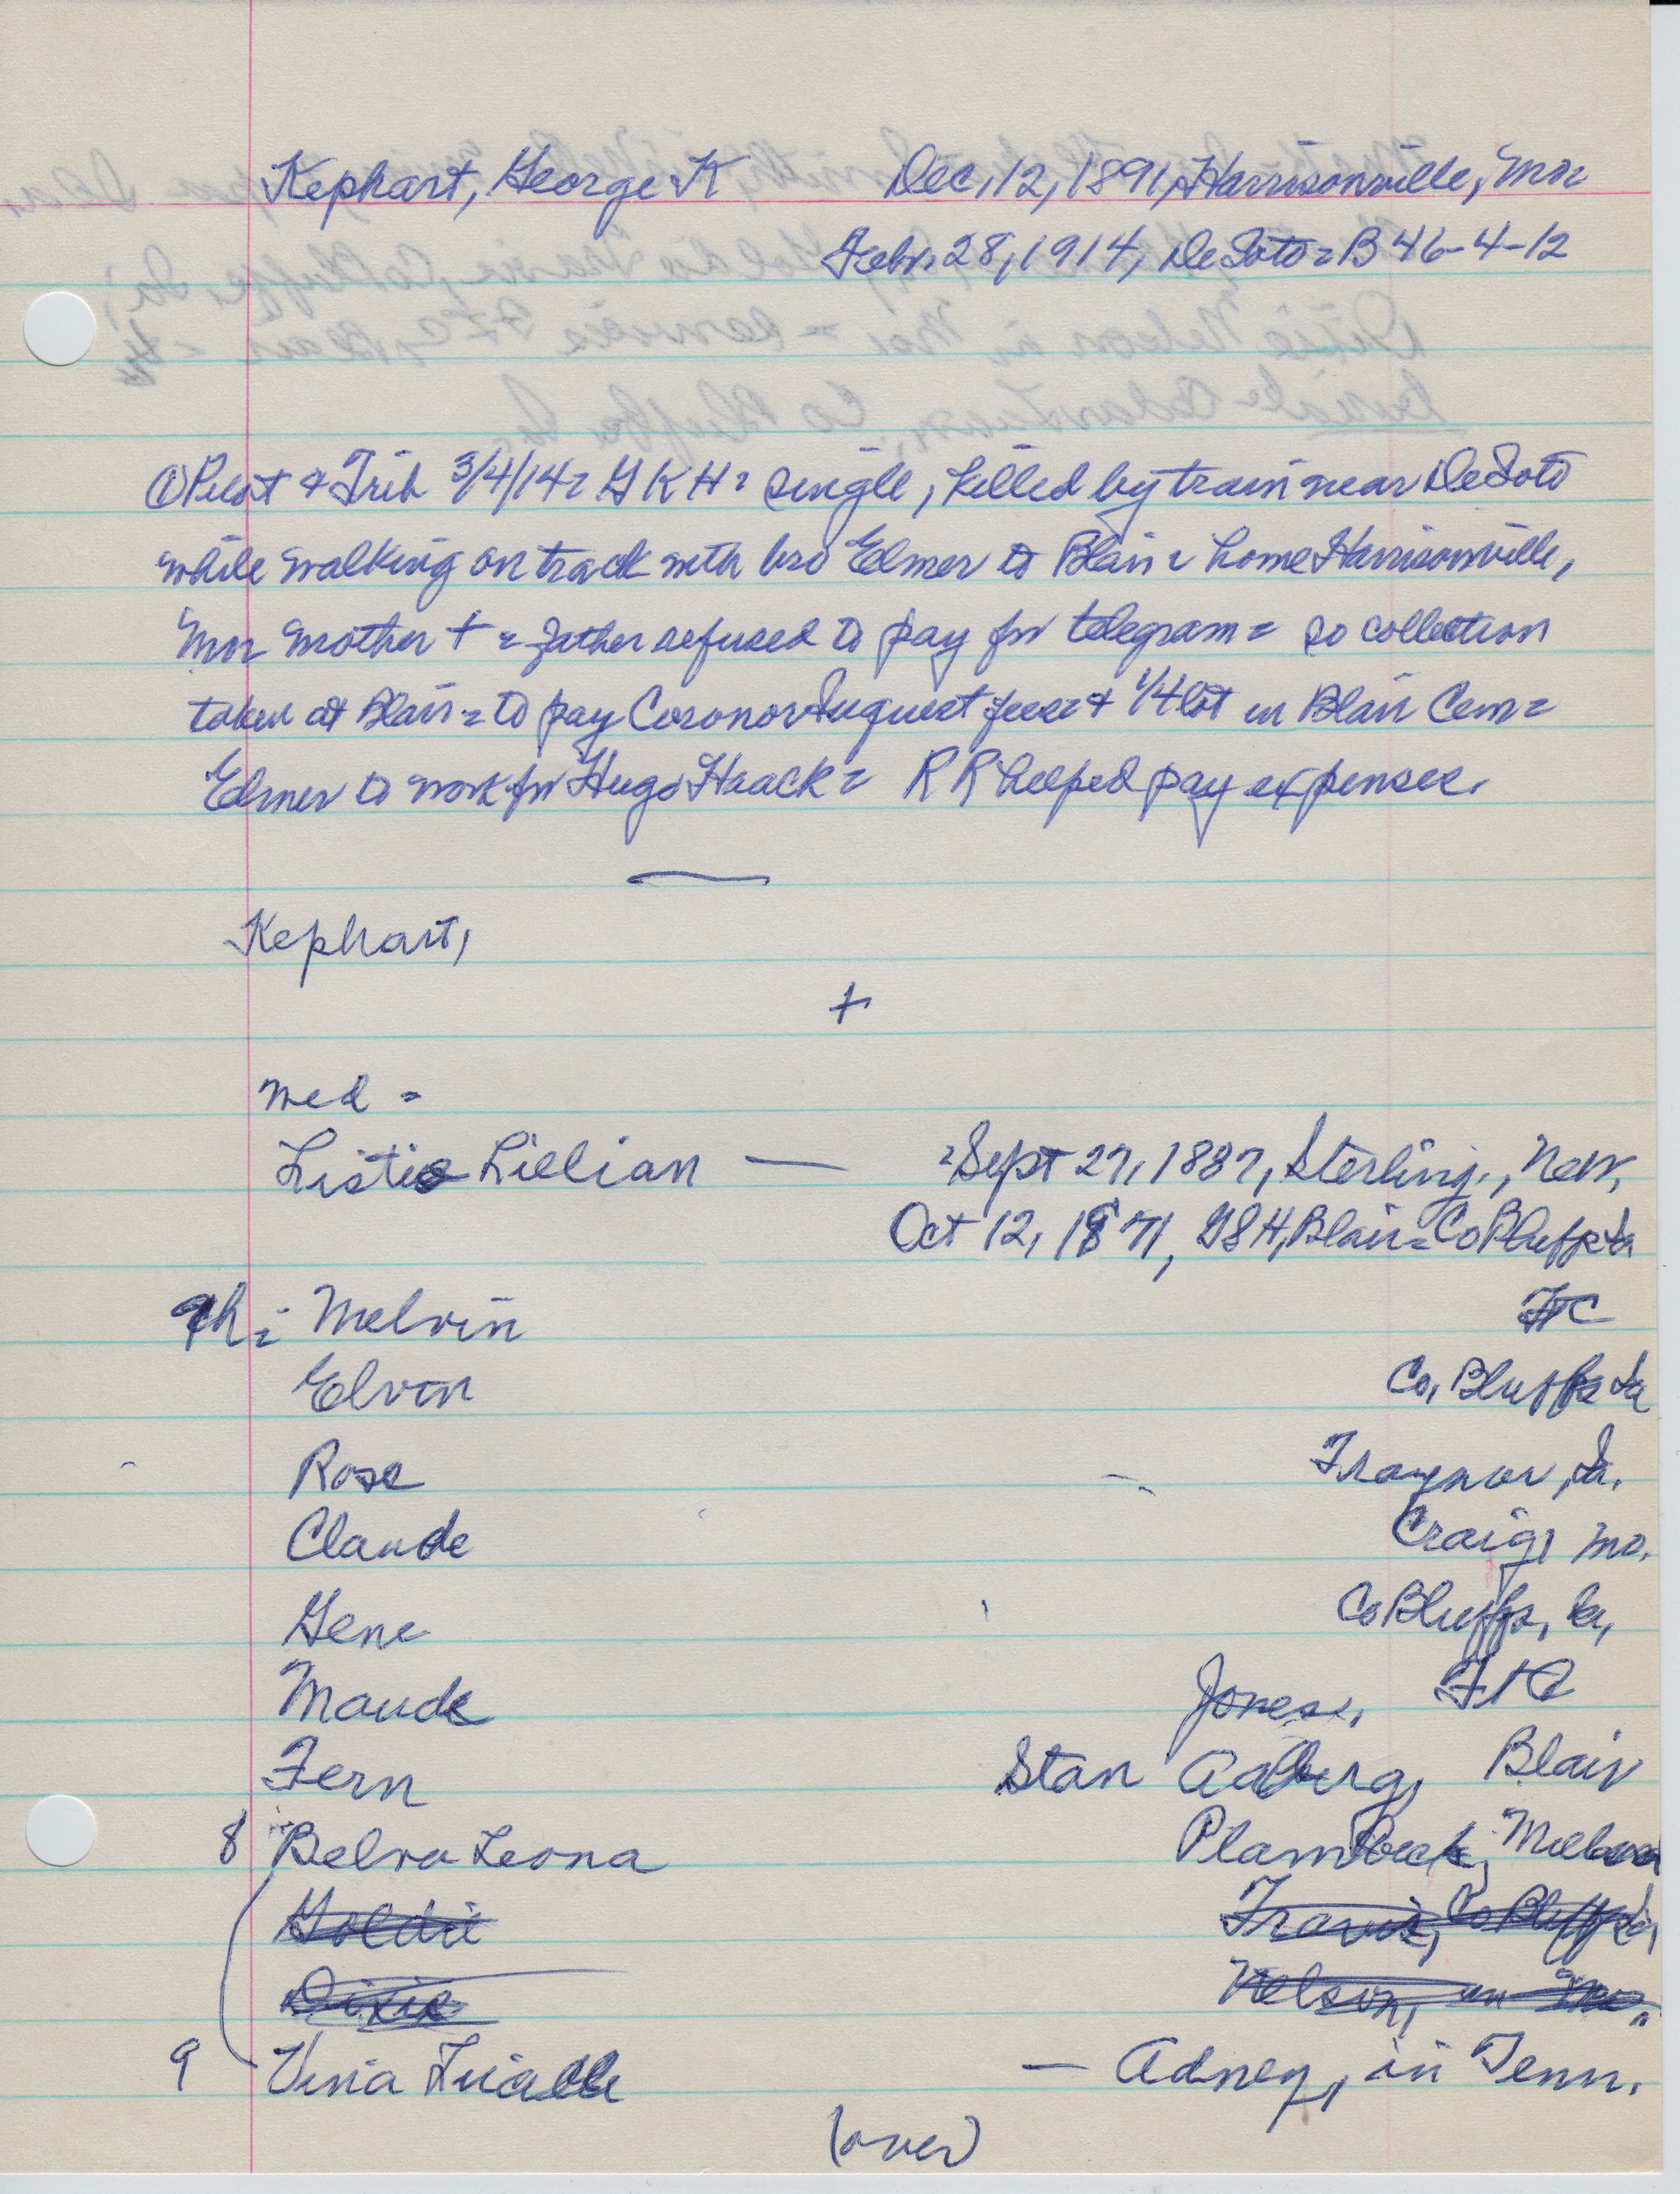 Kephart, George K Dec, 12, 1891, Harrisonville, Mo=
Feb. 28, 1914, De Soto = B 46-4-12
① Pilot & Trib 3/4/14 = G K H = single, killed by train near De Soto
while walking on track with bro Elmer to Blair = home Harrisonville,
Mo= Mother + = father refused to pay for telegram = so collection
taken at Blair = to pay Coronor Inquest fees & 1/4 lot in Blair Cem =
Elmer to work for Hugo Haack = R R helped pay expenses.
Kephart,
+
med =
Listie Lillian — = Sept 27, 1887, Sterling, Neb,
Oct 12, 1971, GSH, Blair = Co Bluffs Ia
9 ch = Melvin FtC
Elvin Co, Bluffs Ia
Rose Traynor, Ia.
Claude Craig, Mo.
Gene Co Bluffs, Ia,
Maude Jones, FtC
Fern Stan Aaberg, Blair
8 Belva Leona Plambeck,
Goldie Travis, Co Bluffs Ia,
Dixie Nelson, in Mo.
9 — Adney, in Tenn.
(over)